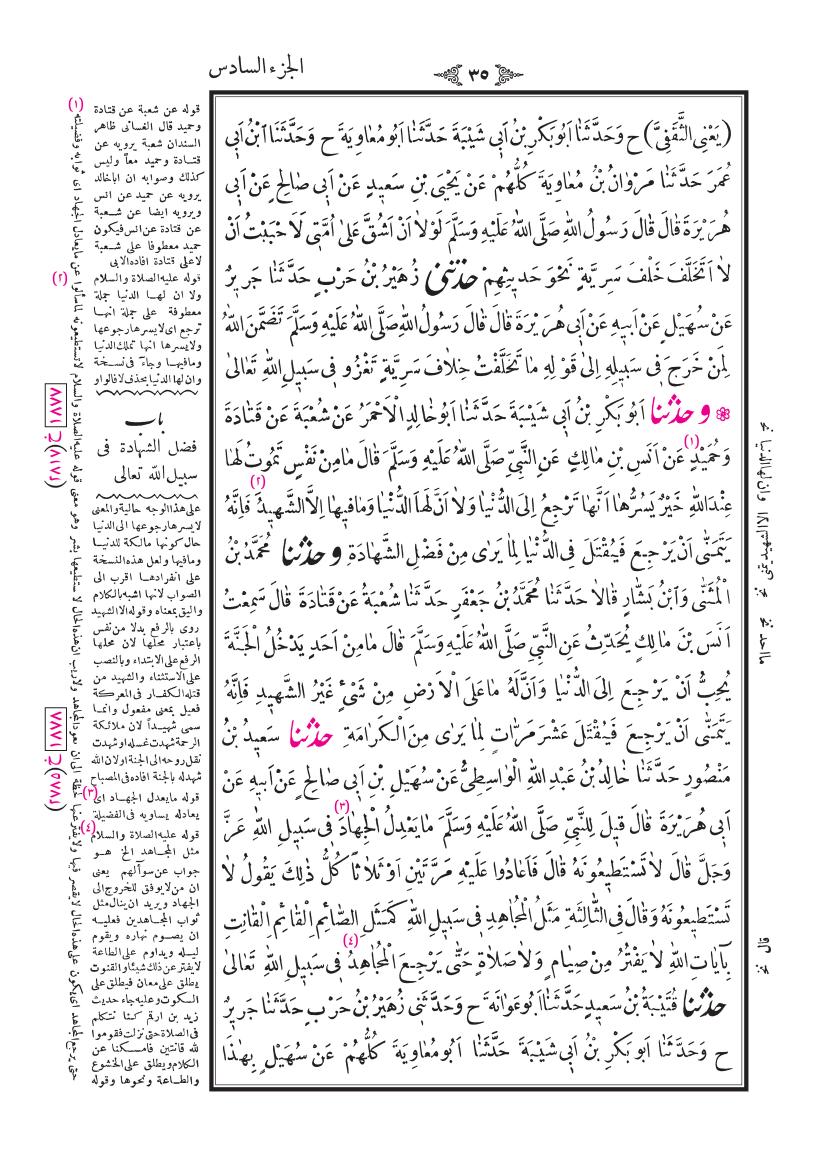 الجزء السادس
٣٥
(يَعْنِى الثَّقَفِىَّ) ح وَحَدَّثَنَا اَبُو بَكْرِ بْنُ اَبِى شَيْبَةَ حَدَّثَنَا اَبُو مُعَاوِيَةَ ح وَحَدَّثَنَا ابْنُ اَبِى
عُمَرَ حَدَّثَنَا مَرْوَانُ بْنُ مُعَاوِيَةَ كُلُّهُمْ عَنْ يَحْيَى بْنِ سَعِيدٍ عَنْ اَبِى صَالِحٍ عَنْ اَبِى
هُرَيْرَةَ قَالَ قَالَ رَسُولُ اللهِ صَلَّى اللهُ عَلَيْهِ وَسَلَّمَ لَوْلَا اَنْ اَشُقَّ عَلَى اُمَّتِى لَاَحْبَبْتُ اَنْ
لَا اَتَخَلَّفَ خَلْفَ سَرِيَّةٍ نَحْوَ حَدِيثِهِمْ حَدَّثَنِى زُهَيْرُ بْنُ حَرْبٍ حَدَّثَنَا جَرِيرٌ
عَنْ سُهَيْلٍ عَنْ اَبِيهِ عَنْ اَبِى هُرَيْرَةَ قَالَ قَالَ رَسُولُ اللهِ صَلَّى اللهُ عَلَيْهِ وَسَلَّمَ تَضَمَّنَ اللهُ
لِمَنْ خَرَجَ فِى سَبِيلِهِ اِلَى قَوْلِهِ مَا تَخَلَّفْتُ خِلَافَ سَرِيَّةٍ تَغْزُو فِى سَبِيلِ اللهِ تَعَالَى
وحَدَّثَنَا اَبُو بَكْرِ بْنُ اَبِى شَيْبَةَ حَدَّثَنَا اَبُو خَالِدٍ الْاَحْمَرُ عَنْ شُعْبَةَ عَنْ قَتَادَةَ
وَحُمَيْدٍ (١) عَنْ اَنَسِ بْنِ مَالِكٍ عَنِ النَّبِىِّ صَلَّى اللهُ عَلَيْهِ وَسَلَّمَ قَالَ مَا مِنْ نَفْسٍ تَمُوتُ لَهَا
عِنْدَ اللهِ خَيْرٌ يَسُرُّهَا اَنَّهَا تَرْجِعُ اِلَى الدُّنْيَا وَلَا (٢) اَنَّ لَهَا الدُّنْيَا وَمَا فِيهَا اِلَّا الشَّهِيدُ فَاِنَّهُ
يَتَمَنَّى اَنْ يَرْجِعَ فَيُقْتَلَ فِى الدُّنْيَا لِمَا يَرَى مِنْ فَضْلِ الشَّهَادَةِ وحَدَّثَنَا مُحَمَّدُ بْنُ
الْمُثَنَّى وَابْنُ بَشَّارٍ قَالَا حَدَّثَنَا مُحَمَّدُ بْنُ جَعْفَرٍ حَدَّثَنَا شُعْبَةُ عَنْ قَتَادَةَ قَالَ سَمِعْتُ
اَنَسَ بْنَ مَالِكٍ يُحَدِّثُ عَنِ النَّبِىِّ صَلَّى اللهُ عَلَيْهِ وَسَلَّمَ قَالَ مَا مِنْ اَحَدٍ يَدْخُلُ الْجَنَّةَ
يُحِبُّ اَنْ يَرْجِعَ اِلَى الدُّنْيَا وَاَنَّ لَهُ مَا عَلَى الْاَرْضِ مِنْ شَىْءٍ غَيْرُ الشَّهِيدِ فَاِنَّهُ
يَتَمَنَّى اَنْ يَرْجِعَ فَيُقْتَلَ عَشْرَ مَرَّاتٍ لِمَا يَرَى مِنَ الْكَرَامَةِ حَدَّثَنَا سَعِيدُ بْنُ
مَنْصُورٍ حَدَّثَنَا خَالِدُ بْنُ عَبْدِ اللهِ الْوَاسِطِىُّ عَنْ سُهَيْلِ بْنِ اَبِى صَالِحٍ عَنْ اَبِيهِ عَنْ
اَبِى هُرَيْرَةَ قَالَ قِيلَ لِلنَّبِىِّ صَلَّى اللهُ عَلَيْهِ وَسَلَّمَ مَا يَعْدِلُ الْجِهَادَ (٣) فِى سَبِيلِ اللهِ عَزَّ
وَجَلَّ قَالَ لَا تَسْتَطِيعُونَهُ قَالَ فَاَعَادُوا عَلَيْهِ مَرَّتَيْنِ اَوْ ثَلَاثًا كُلُّ ذٰلِكَ يَقُولُ لَا
تَسْتَطِيعُونَهُ وَقَالَ فِى الثَّالِثَةِ مَثَلُ الْمُجَاهِدِ فِى سَبِيلِ اللهِ كَمَثَلِ الصَّائِمِ الْقَائِمِ الْقَانِتِ
بِآيَاتِ اللهِ لَا يَفْتُرُ مِنْ صِيَامٍ وَلَا صَلَاةٍ حَتَّى يَرْجِعَ الْمُجَاهِدُ (٤) فِى سَبِيلِ اللهِ تَعَالَى
حَدَّثَنَا قُتَيْبَةُ بْنُ سَعِيدٍ حَدَّثَنَا اَبُو عَوَانَةَ ح وَحَدَّثَنِى زُهَيْرُ بْنُ حَرْبٍ حَدَّثَنَا جَرِيرٌ
ح وَحَدَّثَنَا اَبُو بَكْرِ بْنُ اَبِى شَيْبَةَ حَدَّثَنَا اَبُو مُعَاوِيَةَ كُلُّهُمْ عَنْ سُهَيْلٍ بِهٰذَا
قوله عن شعبة عن قتادة
وحميد قال الغسانى ظاهر
السندان شعبة يرويه عن
قتادة وحميد معاً وليس
كذلك وصوابه ان اباخالد
يرويه عن حميد عن انس
ويرويه ايضا عن شعبة
عن قتادة عن انس فيكون
حميد معطوفا على شعبة
لا على قتادة افاده الابى
قوله عليه الصلاة والسلام
ولا ان لها الدنيا جملة
معطوفة على جملة انها
ترجع اى لا يسرها رجوعها
ولا يسرها انها تملك الدنيا
ومافيها وجاء فى نسخة
وان لها الدنيا بحذف لا فالواو
باب
فضل الشهادة فى
سبيل الله تعالى
على هذا الوجه حالية والمعنى
لا يسرها رجوعها الى الدنيا
حال كونها مالكة للدنيا
ومافيها ولعل هذه النسخة
على انفرادها اقرب الى
الصواب لانها اشبه بالكلام
واليق بمعناه وقوله الا الشهيد
روى بالرفع بدلا من نفس
باعتبار محلها لان محلها
الرفع على الابتداء وبالنصب
على الاستثناء والشهيد من
قتله الكفار فى المعركة
فعيل بمعنى مفعول وانما
سمى شهيداً لان ملائكة
الرحمة شهدت غسله او شهدت
نقل روحه الى الجنة اولان الله
شهد له بالجنة افاده فى المصباح
قوله ما يعدل الجهاد اى
يعادله يساويه فى الفضيلة
قوله عليه الصلاة والسلام
مثل المجاهد الخ هو
جواب عن سؤالهم يعنى
ان من لا يوفق للخروج الى
الجهاد ويريد ان ينال مثل
ثواب المجاهدين فعليه
ان يصوم نهاره ويقوم
ليله ويداوم على الطاعة
لا يفتر عن ذلك شيئا والقنوت
يطلق على معان فيطلق على
السكوت وعليه جاء حديث
زيد بن ارقم كنا نتكلم
فى الصلاة حتى نزلت فقوموا
لله قانتين فامسكنا عن
الكلام ويطلق على الخشوع
والطاعة ونحوها وقوله
(١)
(٢)
(٣)
(٤)
١٨٧٧ ح (١٨٧٨)
ما احد نخ
قال